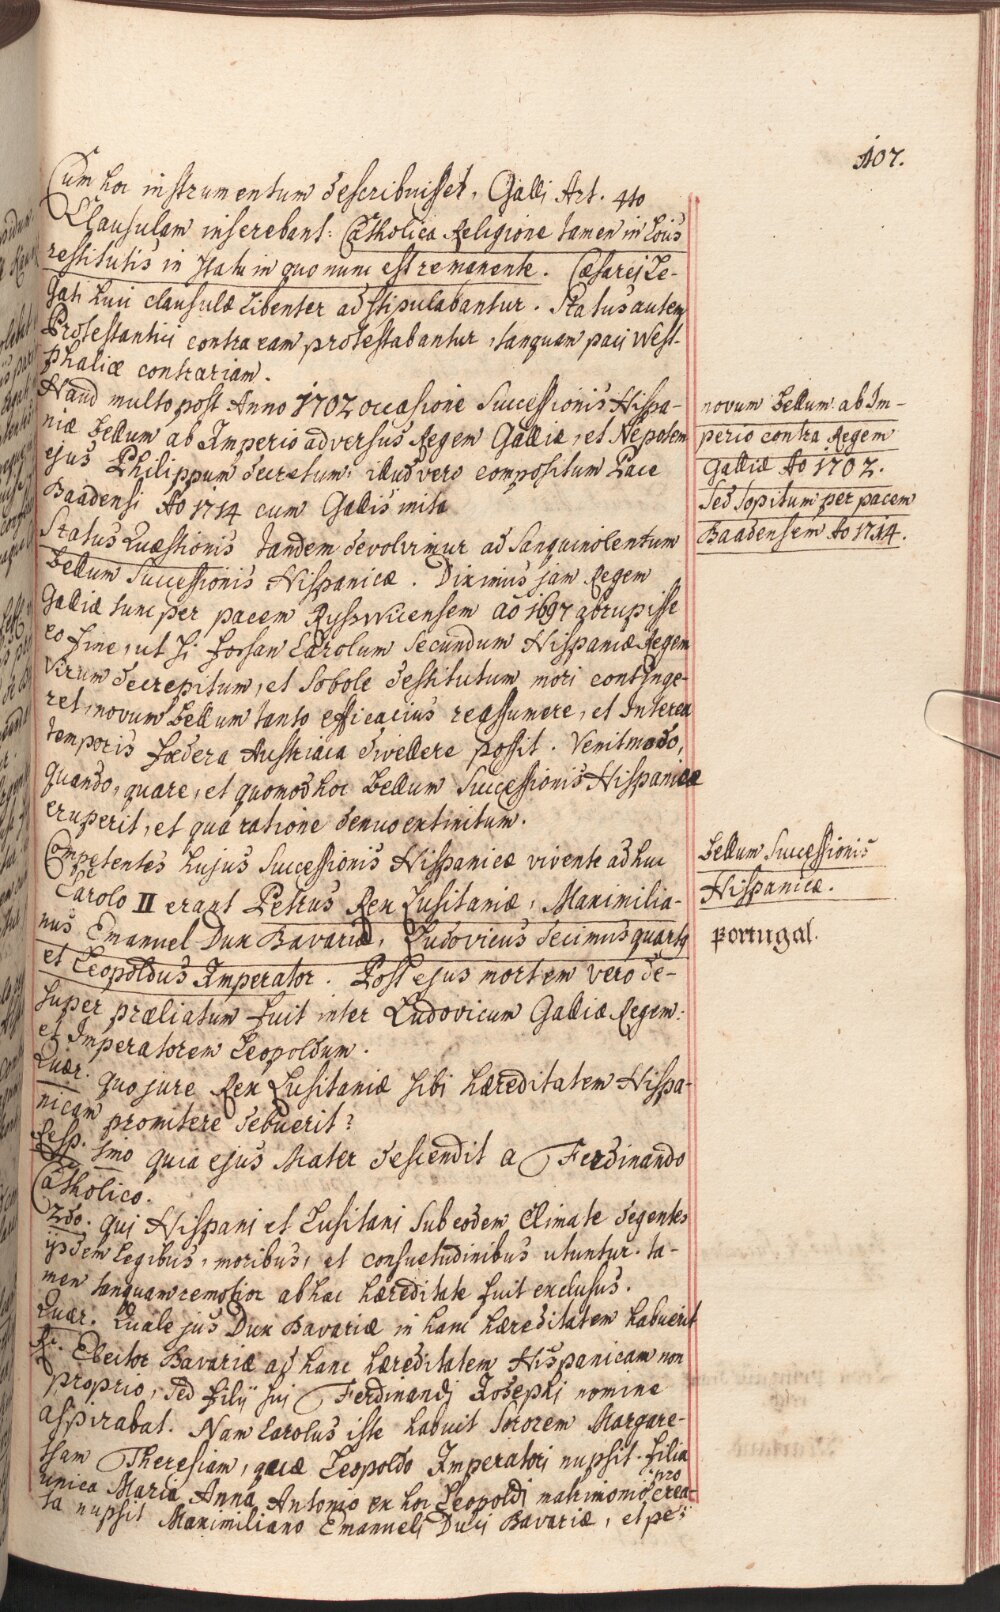 107.
Cum hoc instrumentum describuisset, Galli Art. 4to
Clausulam inserebant: Catholica Religione tamen in Locis
restitutis in statu in quo nunc est remanente. Cæsarej Le-
gati huic clausulæ libenter adstipulabantur. Status autem
Protestantici contra eam protestabantur, tanquam paci West-
phaliæ contrariam.
Haud multo post Anno 1702 occasione Successionis Hispa-
niæ Bellum ab Imperio adversus Regem Galliæ, et Nepotem
ejus Philippum decretum: illud vero compositum Pace
Baadensi Ao 1714 cum Gallis inita
novum Bellum ab Im-
perio contra Regem
Galliæ Ao 1702.
Sed sopitum per pacem
Baadensem Ao 1714.
Status Quæstionis tandem devolvimur ad Sanguinolentum
Bellum Successionis Hispanicæ. Diximus jam Regem
Galliæ tunc per pacem Ryswicensem ao 1697 abrupisse
eo fine, ut si forsan Carolum Secundum Hispaniæ Regem
Virum decrepitum, et Sobole destitutum mori continge-
ret, novum Bellum tanto efficacius reassumere, et Interea
temporis fædera Austriaca divellere possit. Venit modo,
quando, quare, et quomod hoc Bellum Successionis Hispanicæ
eruperit, et qua ratione denuo extinctum.
Competentes hujus Successionis Hispanicæ vivente adhuc
Carolo II erant Petrus Rex Lusitaniæ, Maximilia-
nus Emanuel Dux Bavariæ, Ludovicus decimus quartq
et Leopoldus Imperator. Post ejus mortem vero de-
super præliatum fuit inter Ludovicum Galliæ Regem:
et Imperatorem Leopoldum.
Bellum Successionis
Hispanicæ.
Portugal.
Quær. quo jure Rex Lusitaniæ sibi hæreditatem Hispa-
nicam promitere debuerit?
Resp. Imo quia ejus Mater descendit a Ferdinando
Catholico.
2do. qui Hispani et Lusitani Sub eodem Climate degentes
ijsdem legibus, moribus, et consuetudinibus utuntur. ta-
men tanquam remotior ab hac hæreditate fuit exclusus.
Quær. Quale jus Dux Bavariæ in hanc hæreditatem habuerit
R. Elector Bavariæ ad hanc hæreditatem Hispanicam non
proprio, sed filij sui Ferdinandj Josephi nomine
aspirabat. Nam Carolus iste habuit Sororem Margare-
tham Theresiam, quæ Leopoldo Imperatori nupsit. filia
unica Maria Anna Antonio ex hoc Leopoldi matrimonio pro crea-
ta nupsit Maximiliano Emanuelj Ducj Bavariæ, et pe: